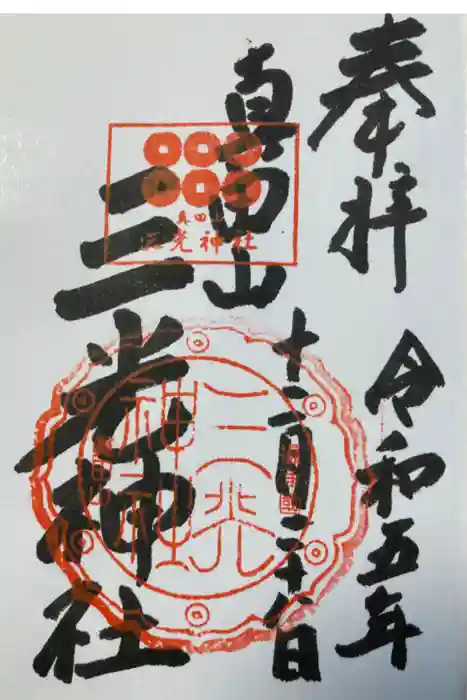 奉拝
令和五年
真田山
十二月二十八日
三光神社
真田山
三光神社
三光
神社